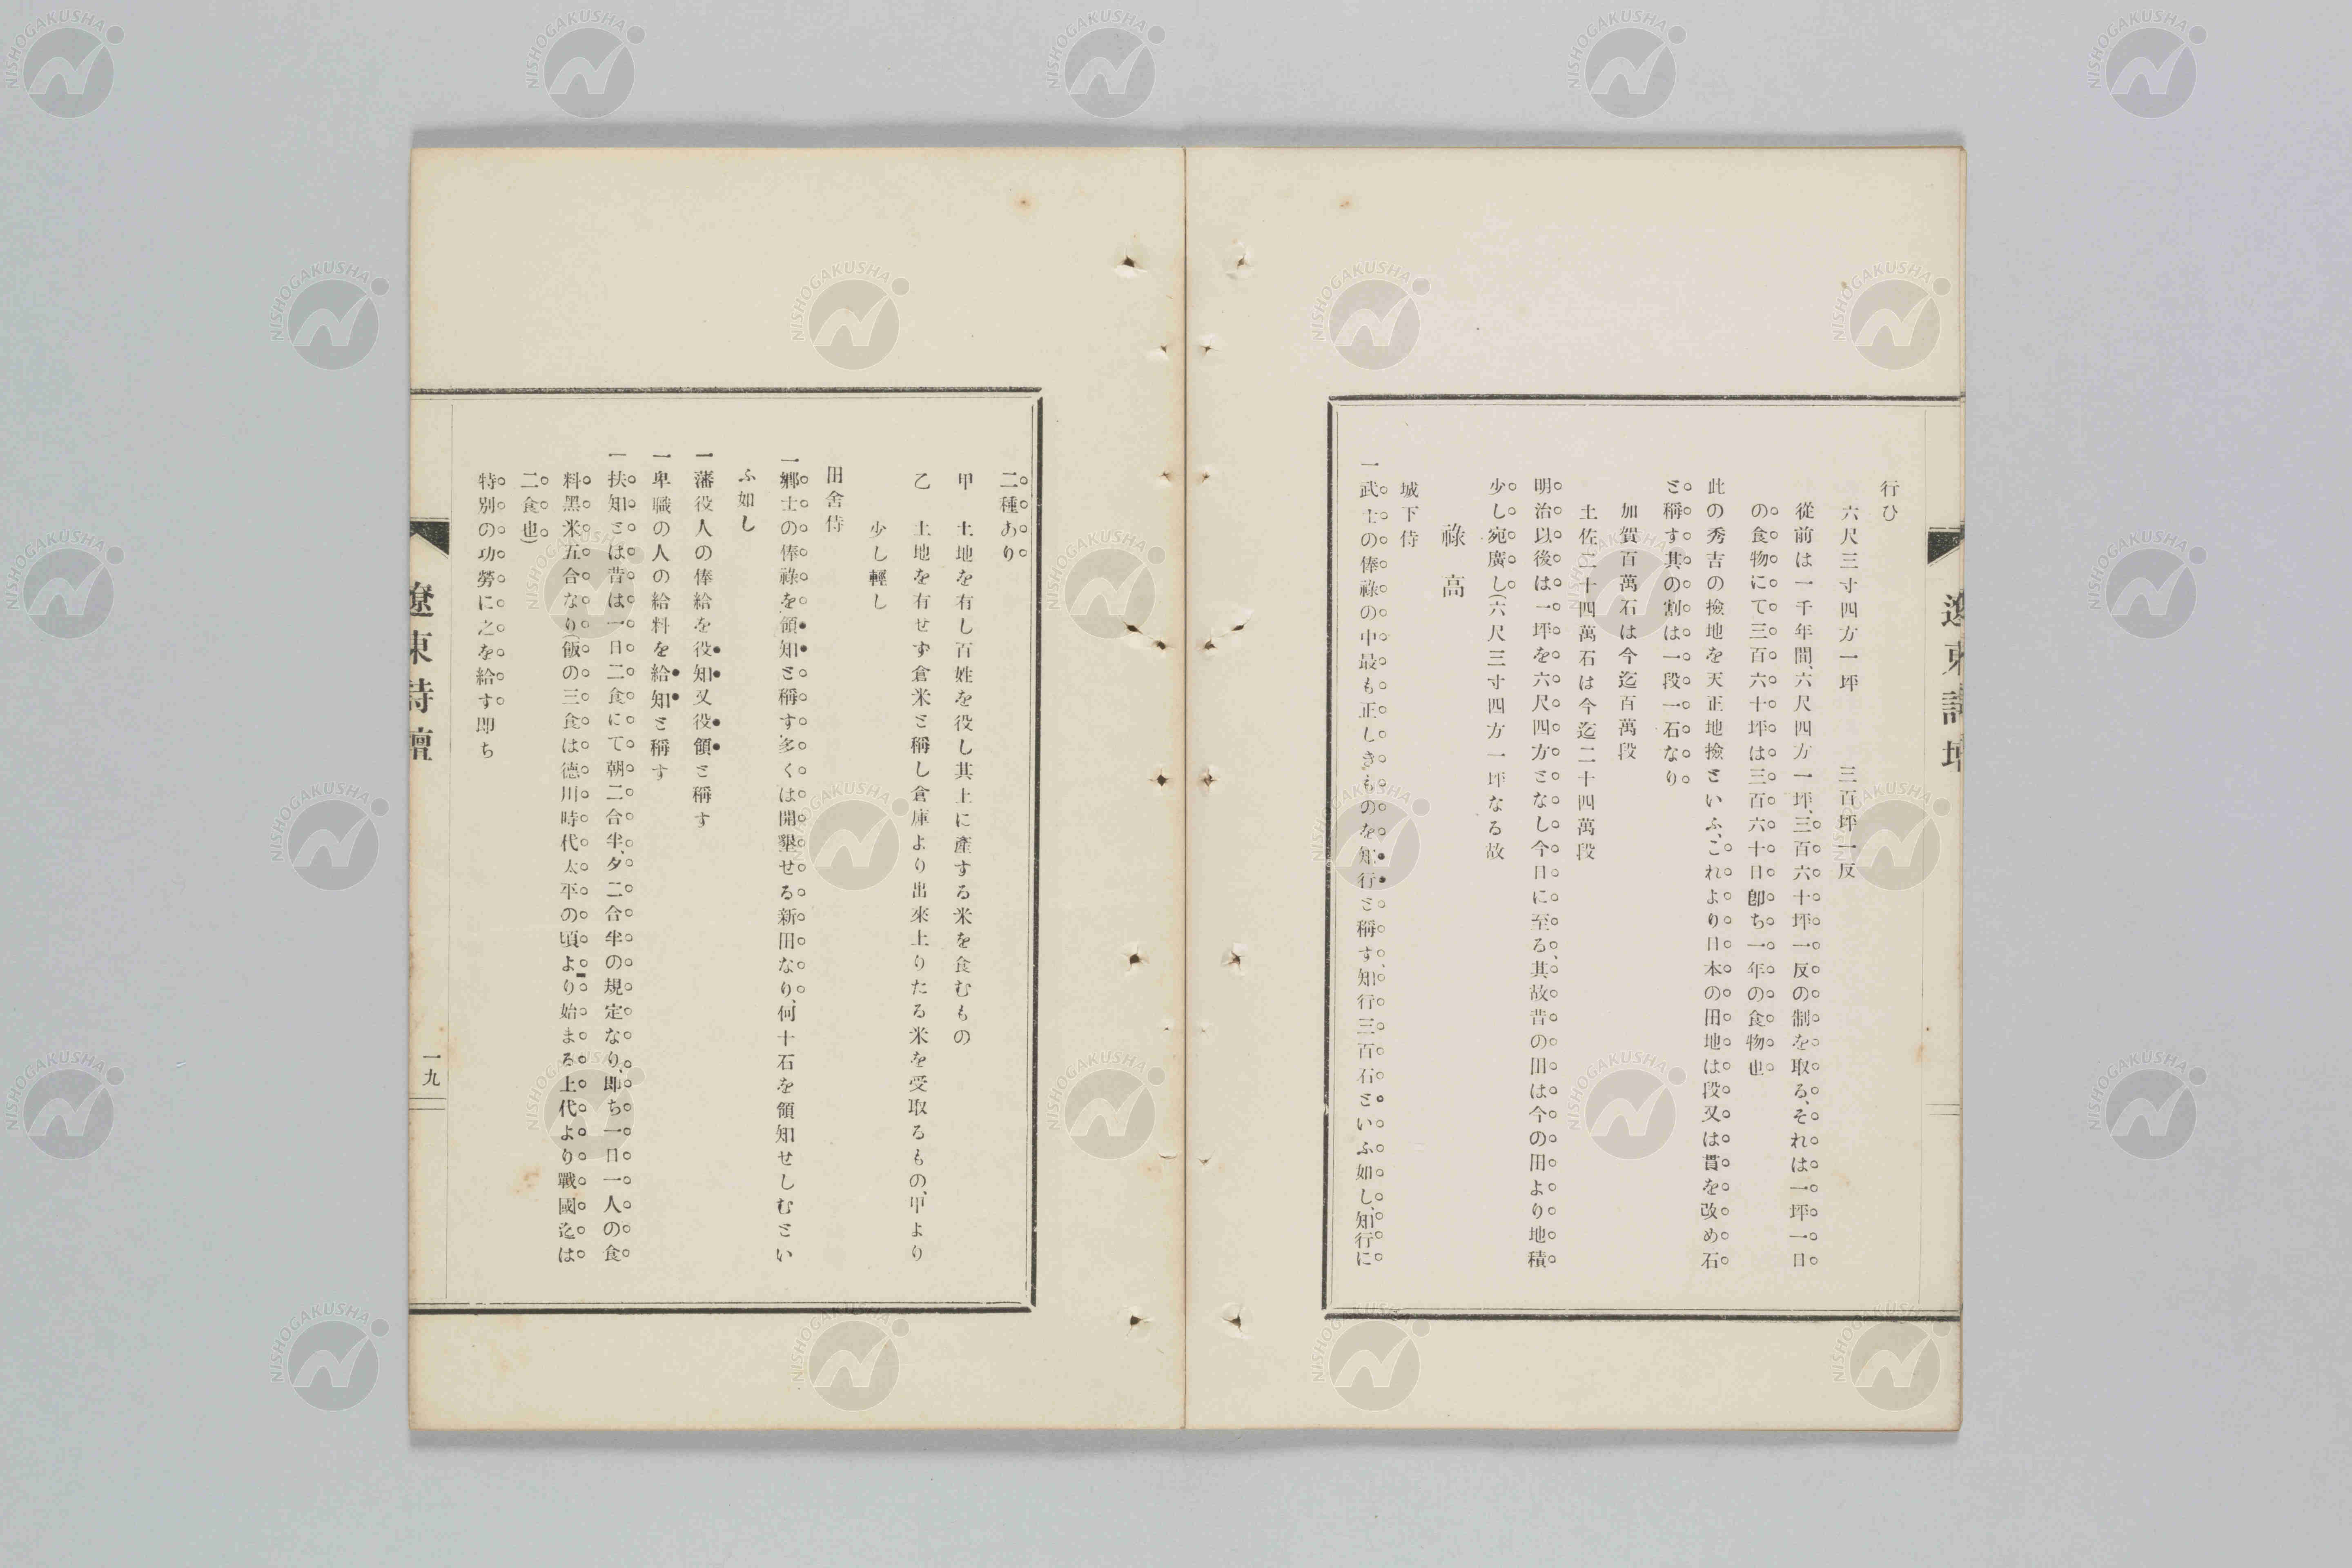 行ひ
六尺三寸四方一坪 三百坪一反
從前は一千年間、六尺四方一坪、三百六十坪一反の制を取る、それは一坪一日
の食物にて三百六十坪は三百六十日卽ち一年の食物也
此の秀吉の撿地を天正地撿といふ、これより日本の田地は段又は貫を改め石
と稱す其の割は一段一石なり
加賀百萬石は今迄百萬段
土佐二十四萬石は今迄二十四萬段
明治以後は一坪を六尺四方となし今日に至る、其故昔の田は今の田より地積
少し宛廣し(六尺三寸四方一坪なる故
祿高
城下侍
一武士の俸祿の中最も正しきものを知行と稱す、知行三百石といふ如し、知行に
二種あり
甲 土地を有し百姓を役し其上に產する米を食むもの
乙 土地を有せず倉米と稱し倉庫より出來上りたる米を受取るもの、甲より
少し輕し
田舍侍
一鄕士の俸祿を領知と稱す多くは開墾せる新田なり、何十石を領知せしむとい
ふ如し
一藩役人の俸給を役知又役領と稱す
一卑職の人の給料を給知と稱す
一扶知とは昔は一日二食にて朝二合半、夕二合半の規定なり、卽ち一日一人の食
料黑米五合なり(飯の三食は德川時代太平の頃より始まる上代より戰國迄は
二食也)
特別の功勞に之を給す卽ち
遼東詩壇
一九
NISHOGAKUSHA